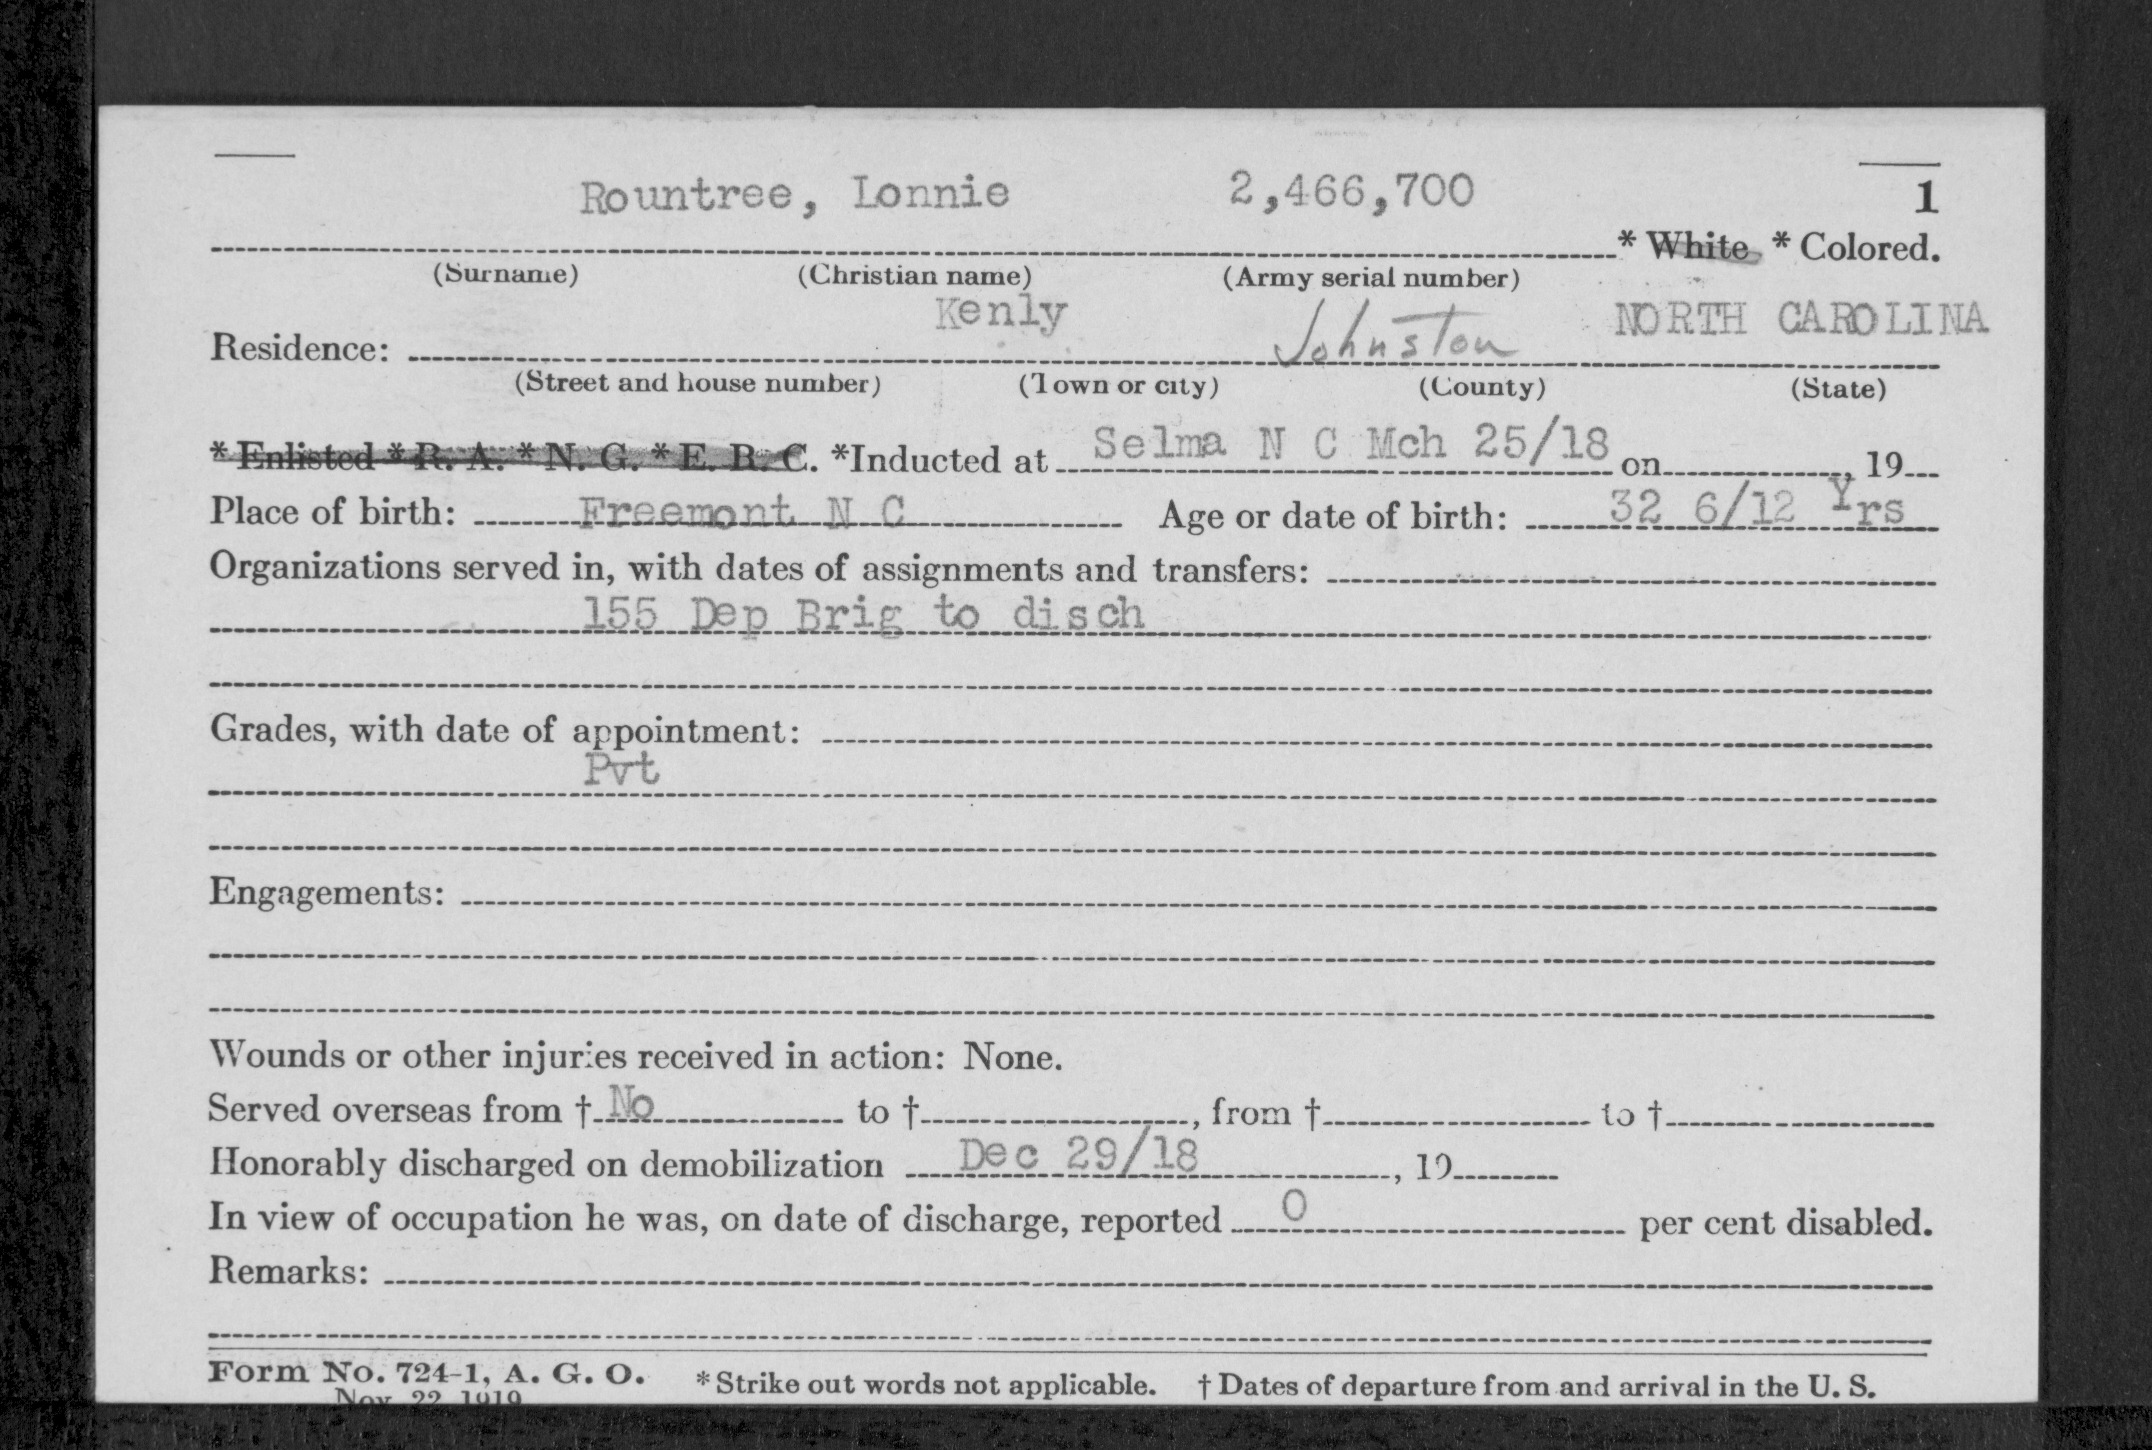 Rountree, Lonnie 2,466,700 1
* White * Colored.
(Surname) (Christian name) (Army serial number)
Residence: Kenly Johnston NORTH CAROLINA
(Street and house number) (Town or city) (County) (State)
* Enlisted * R. A. * N. G. * E. R. C. *Inducted at Selma N C Mch 25/18 on , 19
Place of birth: Freemont N C Age or date of birth: 32 6/12 Yrs
Organizations served in, with dates of assignments and transfers:
155 Dep Brig to disch
Grades, with date of appointment:
Pvt
Engagements:
Wounds or other injuries received in action: None.
Served overseas from † No to † , from † to †
Honorably discharged on demobilization Dec 29/18 , 19
In view of occupation he was, on date of discharge, reported 0 per cent disabled.
Remarks:
Form No. 724-1, A. G. O. * Strike out words not applicable. † Dates of departure from and arrival in the U. S.
Nov. 22, 1919